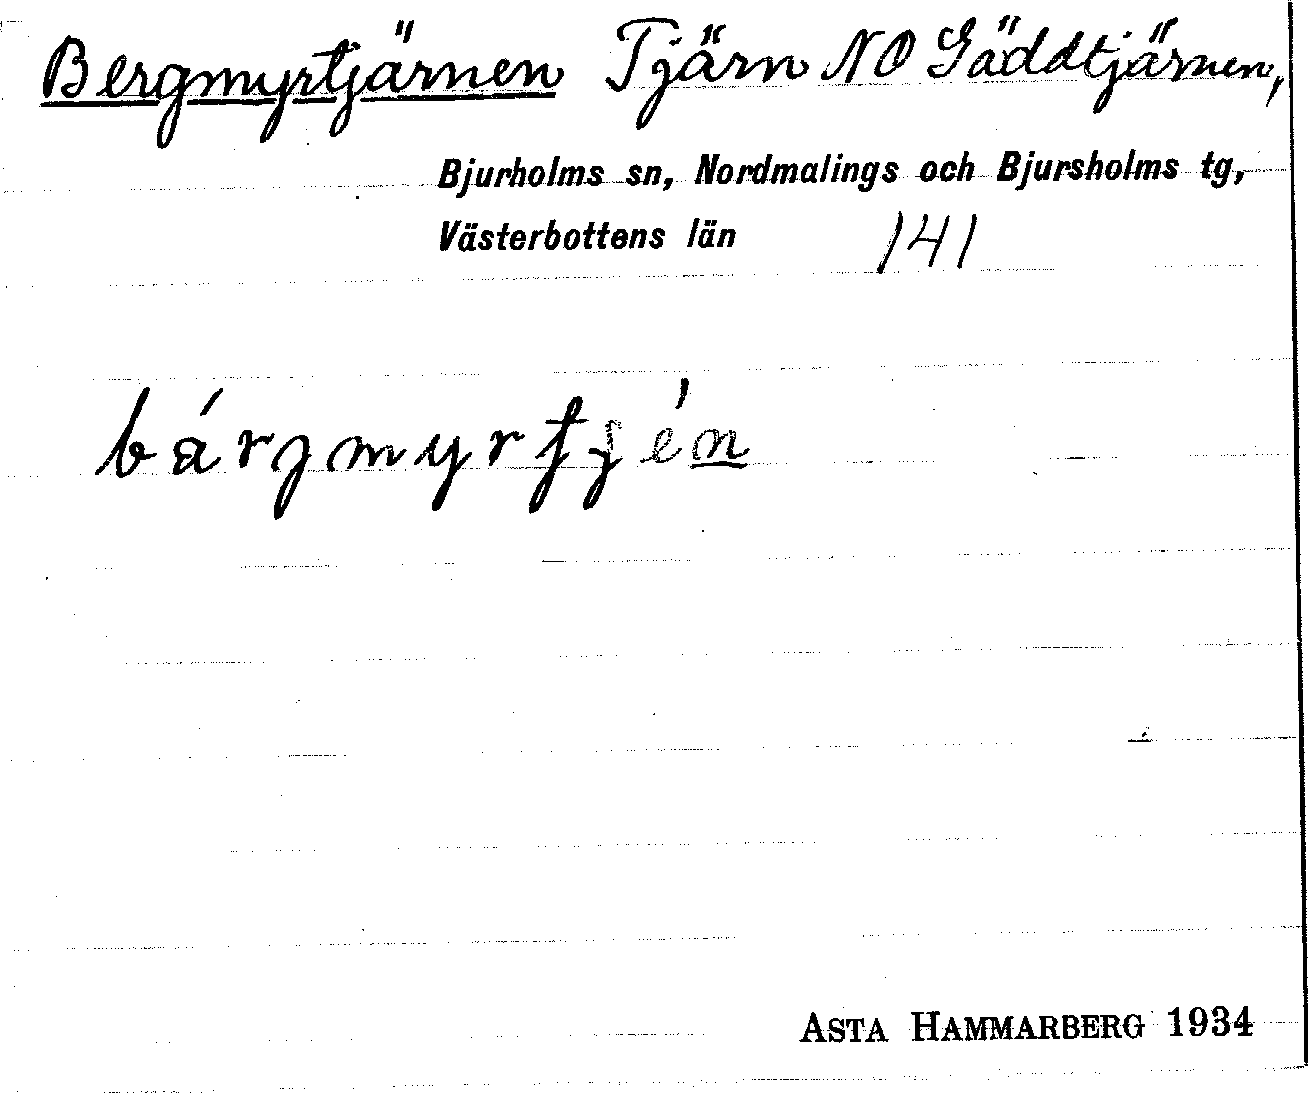 Bergmyrtjärnen Tjärn NO Gäddtjärnen,
Bjurholms sn, Nordmalings och Bjursholms tg,
Västerbottens län 141
bárgmyrtjén
ASTA HAMMARBERG 1934